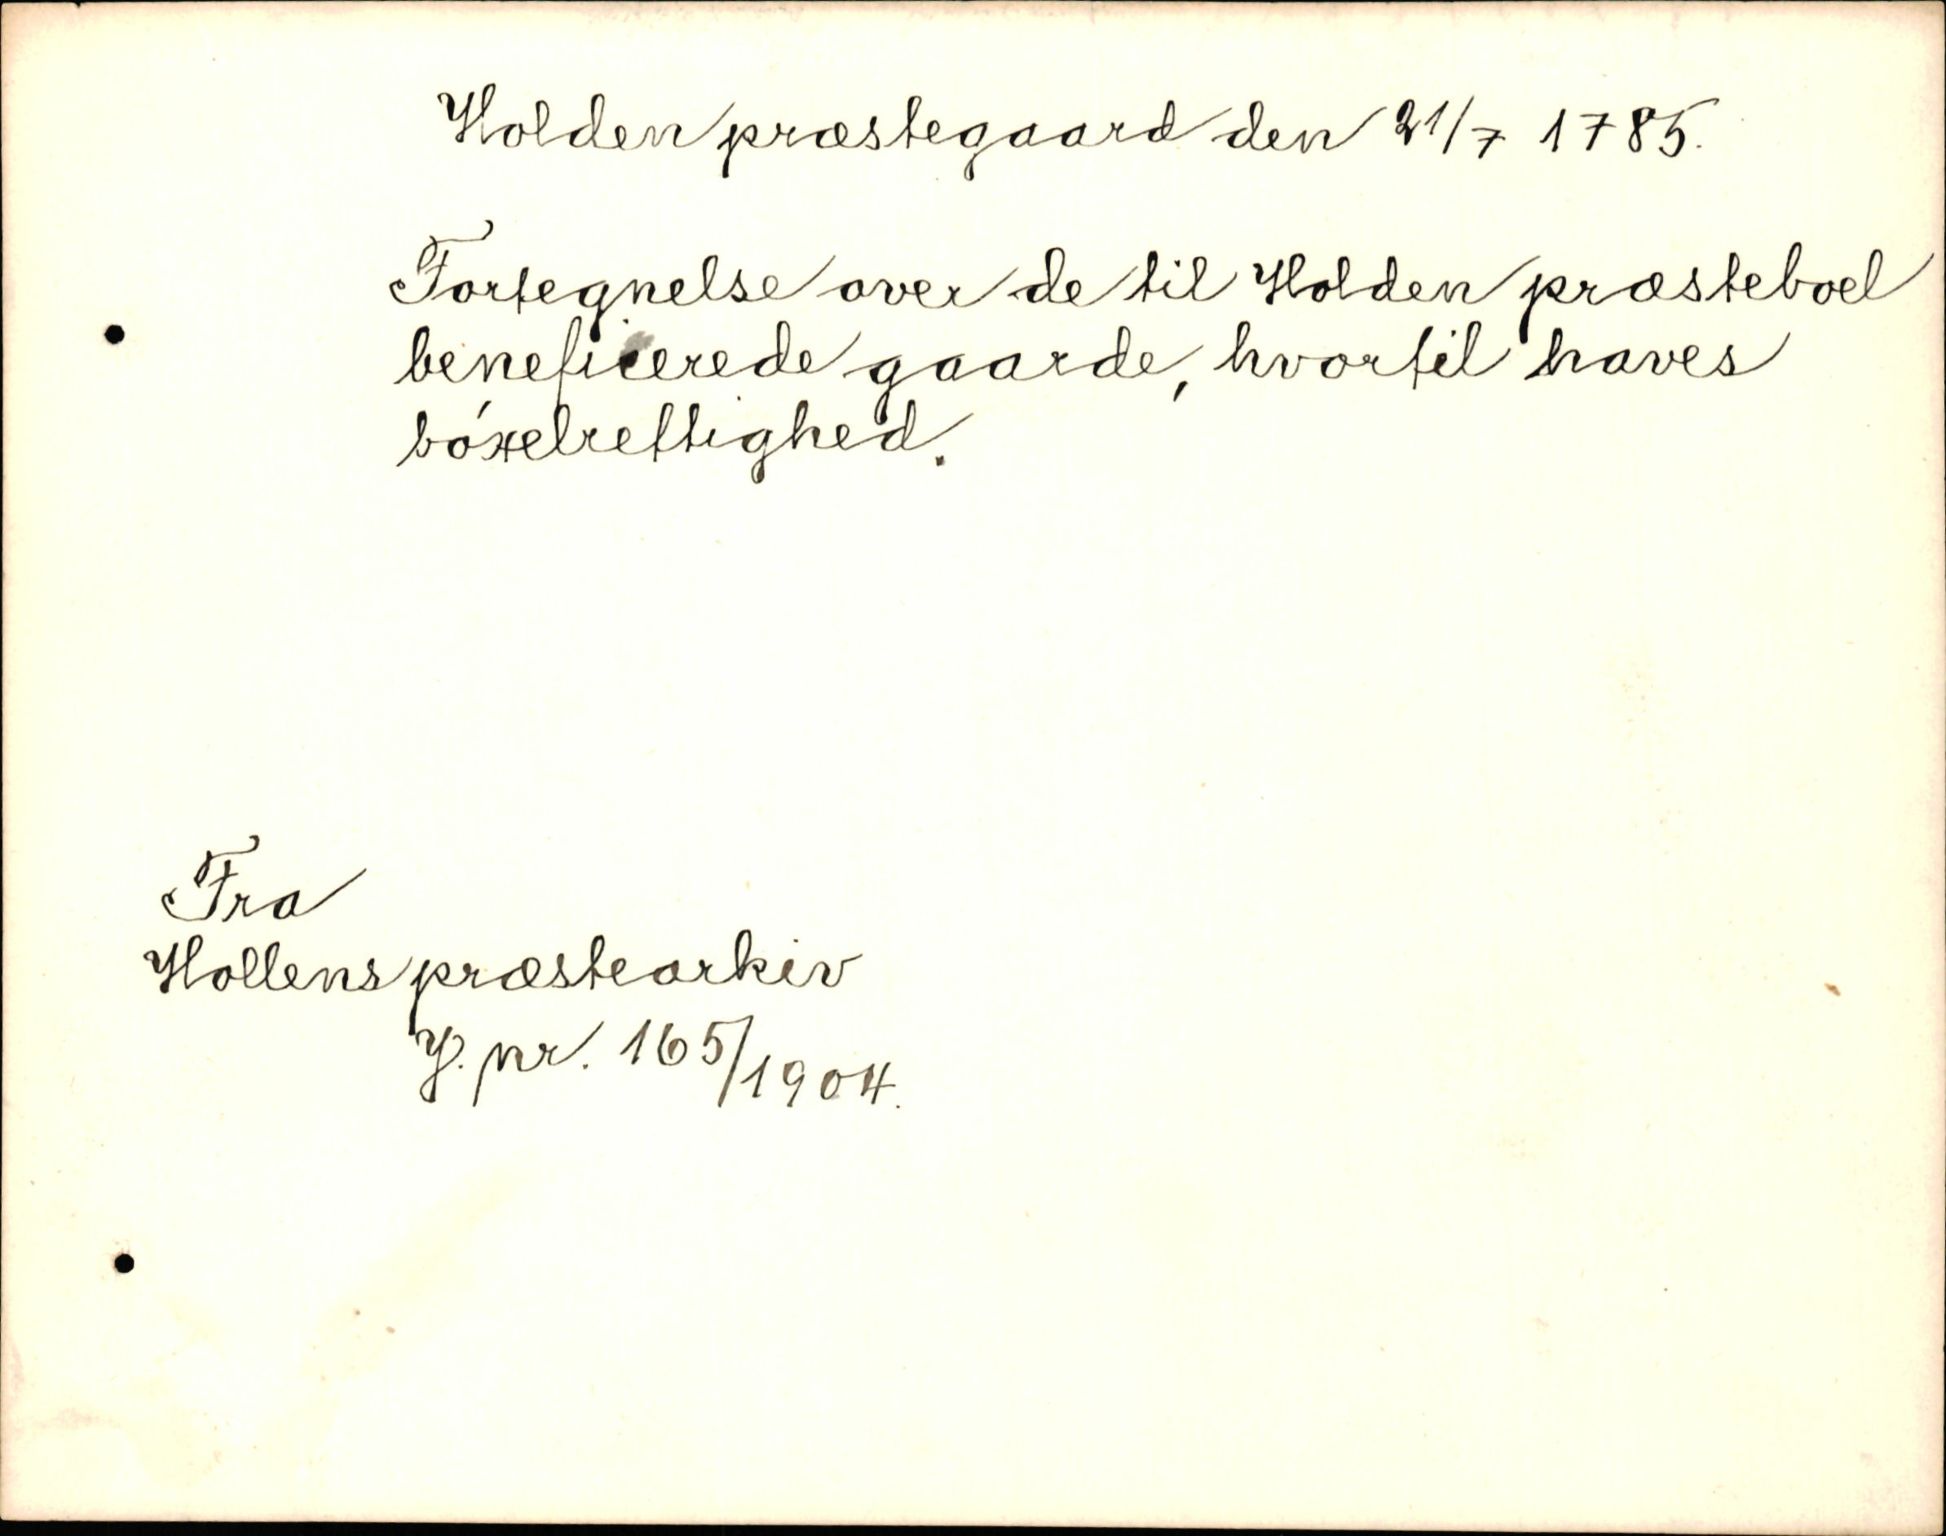 Holden præstegaard den 21/7 1785.
Fortegnelse over de til Holden præsteboel
beneficerede gaarde, hvortil haves
bóxelrettighed.
Fra
Hollens præstearkiv
J. nr. 165/1904.